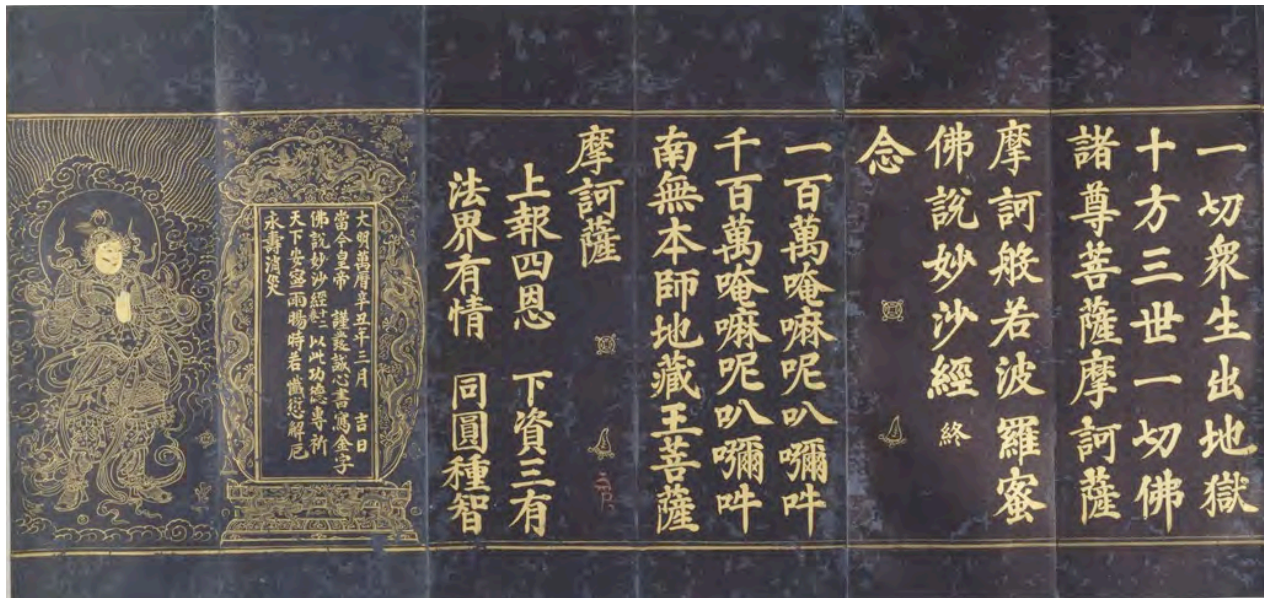 一切衆生出地獄
十方三世一切佛
諸尊菩薩摩訶薩
摩訶般若波羅蜜
佛說妙沙經 終
念
一百萬唵嘛呢叭㘁吽
千百萬唵嘛呢叭㘁吽
南無本師地藏王菩薩
摩訶薩
上報四恩 下資三有
法界有情 同圓種智
大明萬曆辛丑年三月 吉日
當今皇帝 謹發誠心書寫金字
佛說妙沙經 以此功德專祈
天下安寧雨暘時若懺愆解厄
永壽消災